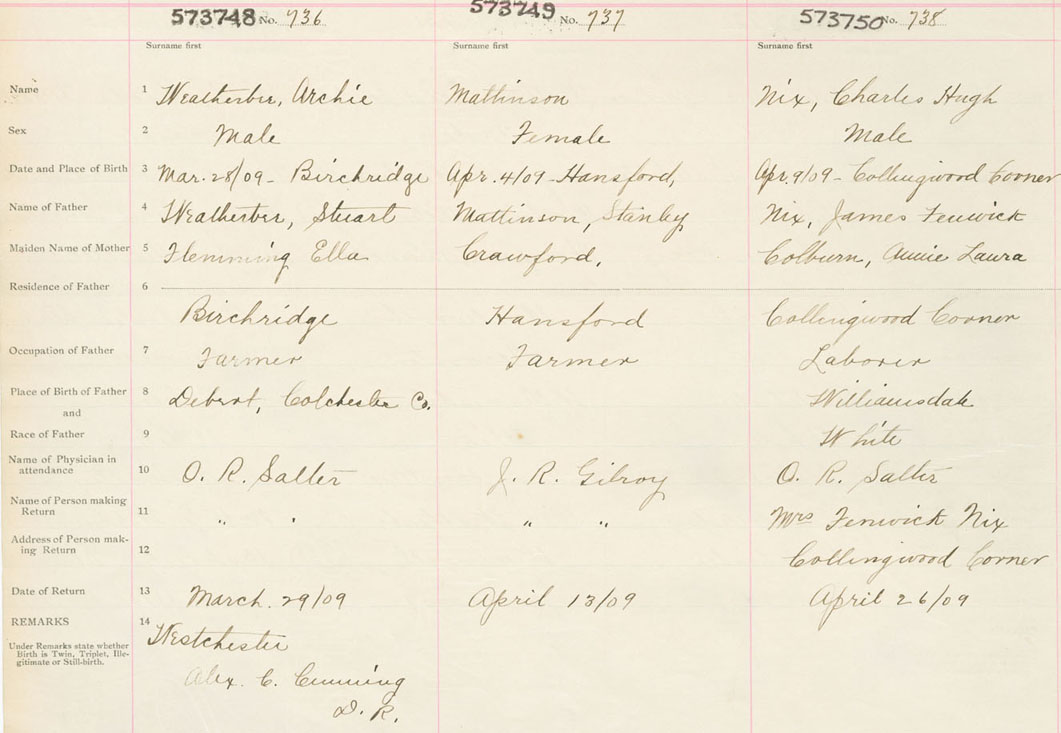 573748 No. 736 573749 No. 737 573750 No. 738
Surname first Surname first Surname first
Name 1 Weatherbee, Archie Mattinson Nix, Charles Hugh
Sex 2 Male Female Male
Date and Place of Birth 3 Mar. 28/09 - Birchridge Apr. 4/09 - Hansford, Apr. 9/09 - Collingwood Corner
Name of Father 4 Weatherbee, Stuart Mattinson, Stanley Nix, James Fenwick
Maiden Name of Mother 5 Flemming Ella Crawford, Colburn, Annie Laura
Residence of Father 6
Birchridge Hansford Collingwood Corner
Occupation of Father 7 Farmer Farmer Laborer
Place of Birth of Father 8 Debert, Colchester Co. Williamsdale
and
Race of Father 9 White
Name of Physician in
attendance 10 O. R. Salter J. R. Gilroy O. R. Salter
Name of Person making
Return 11 " " " " Mrs Fenwick Nix
Address of Person mak-
ing Return 12 Collingwood Corner
Date of Return 13 March. 29/09 April 13/09 April 26/09
REMARKS 14 Westchester
Under Remarks state whether
Birth is Twin, Triplet, Ille-
gitimate or Still-birth.
Alex. C. Cumming
D. R.